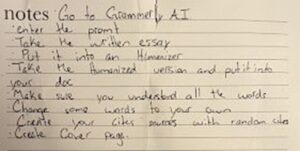 notes Go to Grammerly AI
· enter the promt
Take the written essay
Put it into an Humanizer
Take the Humanized version and put it into
your doc
Make sure you understand all the words
Change some words to your own
Create your cites sources with random cites
· Create Cover page.